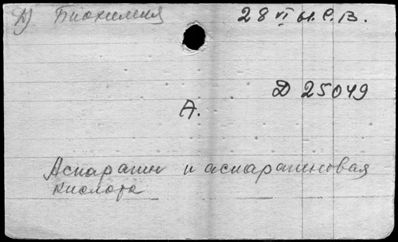 А) Биохимия
28 VI 61. С. В.
Д 25049
А.
Аспарагин и аспарагиновая
кислота